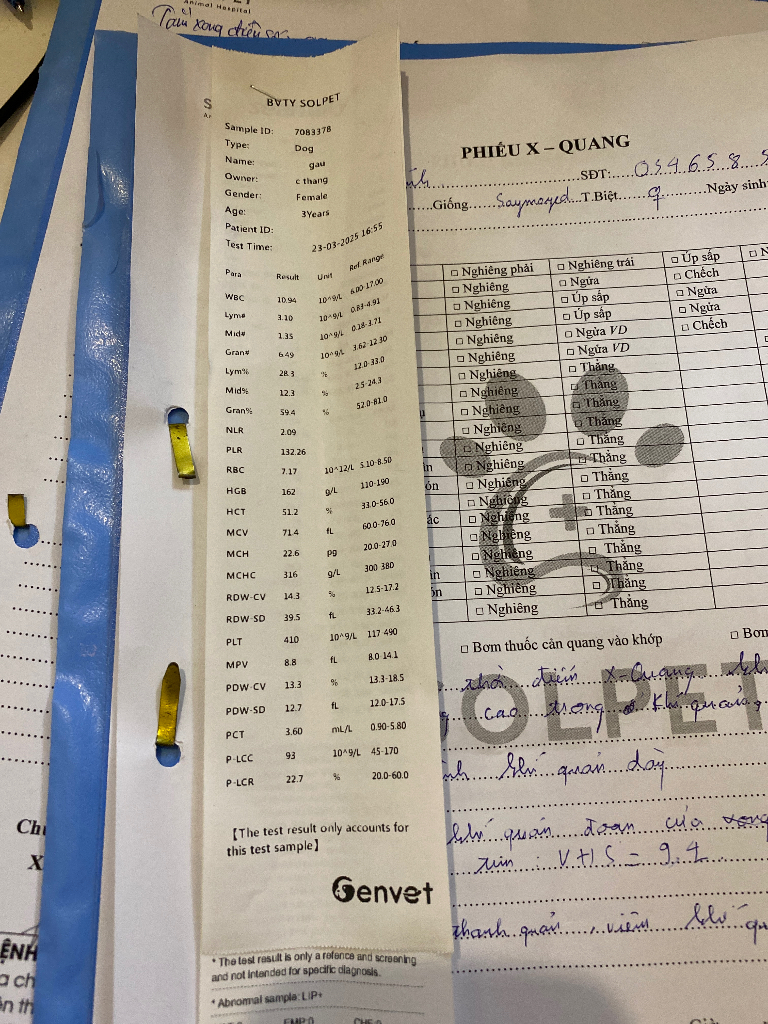 Animal Hospital
Tắm xong điều
BVTY SOLPET
Sample ID: 7083378
Type: Dog
Name: gau
Owner: c thang
Gender: Female
Age: 3Years
Patient ID:
Test Time: 23-03-2025 16:55
Para Result Unit Ref. Range
WBC 10.94 10^9/L 6.00-17.00
Lym# 3.10 10^9/L 0.83-4.91
Mid# 1.35 10^9/L 0.18-3.71
Gran# 6.49 10^9/L 3.62-12.30
Lym% 28.3 % 12.0-33.0
Mid% 12.3 % 2.5-24.3
Gran% 59.4 % 52.0-81.0
NLR 2.09
PLR 132.26
RBC 7.17 10^12/L 5.10-8.50
HGB 162 g/L 110-190
HCT 51.2 % 33.0-56.0
MCV 71.4 fL 60.0-76.0
MCH 22.6 pg 20.0-27.0
MCHC 316 g/L 300-380
RDW-CV 14.3 % 12.5-17.2
RDW-SD 39.5 fL 33.2-46.3
PLT 410 10^9/L 117-490
MPV 8.8 fL 8.0-14.1
PDW-CV 13.3 % 13.3-18.5
PDW-SD 12.7 fL 12.0-17.5
PCT 3.60 mL/L 0.90-5.80
P-LCC 93 10^9/L 45-170
P-LCR 22.7 % 20.0-60.0
【The test result only accounts for
this test sample】
Genvet
* The test result is only a refence and screening
and not intended for specific diagnosis.
* Abnormal sample: LIP+
PHIẾU X – QUANG
SĐT: 0546585
Giống Saymoyed T.Biệt ♀ Ngày sinh
□ Nghiêng phải □ Nghiêng trái □ Úp sấp
□ Nghiêng □ Ngửa □ Chếch
□ Nghiêng □ Úp sấp □ Ngửa
□ Nghiêng □ Úp sấp □ Ngửa
□ Nghiêng □ Ngửa VD □ Chếch
□ Nghiêng □ Ngửa VD
□ Nghiêng □ Thẳng
□ Nghiêng □ Thẳng
□ Nghiêng □ Thẳng
□ Nghiêng □ Thẳng
□ Nghiêng □ Thẳng
□ Nghiêng □ Thẳng
□ Nghiêng □ Thẳng
□ Nghiêng □ Thẳng
□ Nghiêng □ Thẳng
□ Nghiêng □ Thẳng
□ Nghiêng □ Thẳng
□ Nghiêng □ Thẳng
□ Nghiêng □ Thẳng
□ Nghiêng □ Thẳng
□ Bơm thuốc cản quang vào khớp □ Bơm
OLPET
thời điểm X-Quang
cao trong khí quản
khí quản dày
khí quản đoạn cửa
V+1S = 9.4
thanh quản, viêm khí